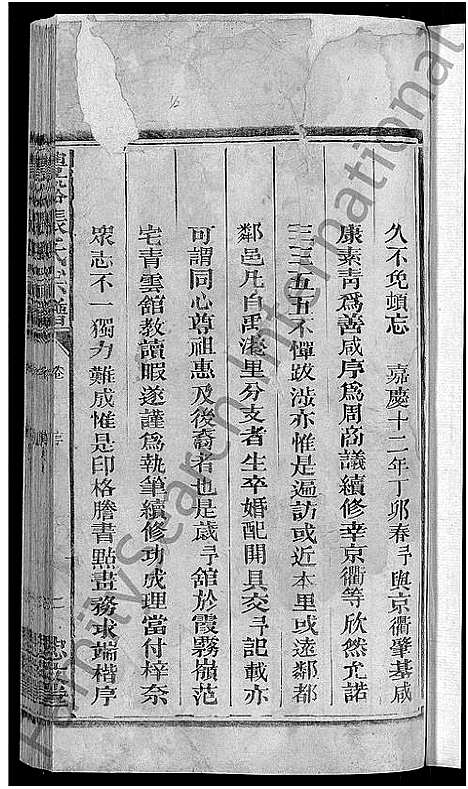 久不免頓忘　嘉慶十二年丁卯春予與京衢肇基咸
康素靑爲善咸序爲周商議續修幸京衢等欣然允諾
三三五五不憚跋涉亦惟是遍訪或近本里或遠鄰都
鄰邑凡自禹港里分支者生卒婚配開具交予記載亦
可謂同心尊祖惠及後裔者也是歲予舘於霞霧嶺范
宅青雲舘敎讀暇遂謹爲執筆續修功成理當付梓奈
眾志不一獨力難成惟是印格謄書點畫務求端楷序
張氏宗譜
卷
序
二
FamilySearch International